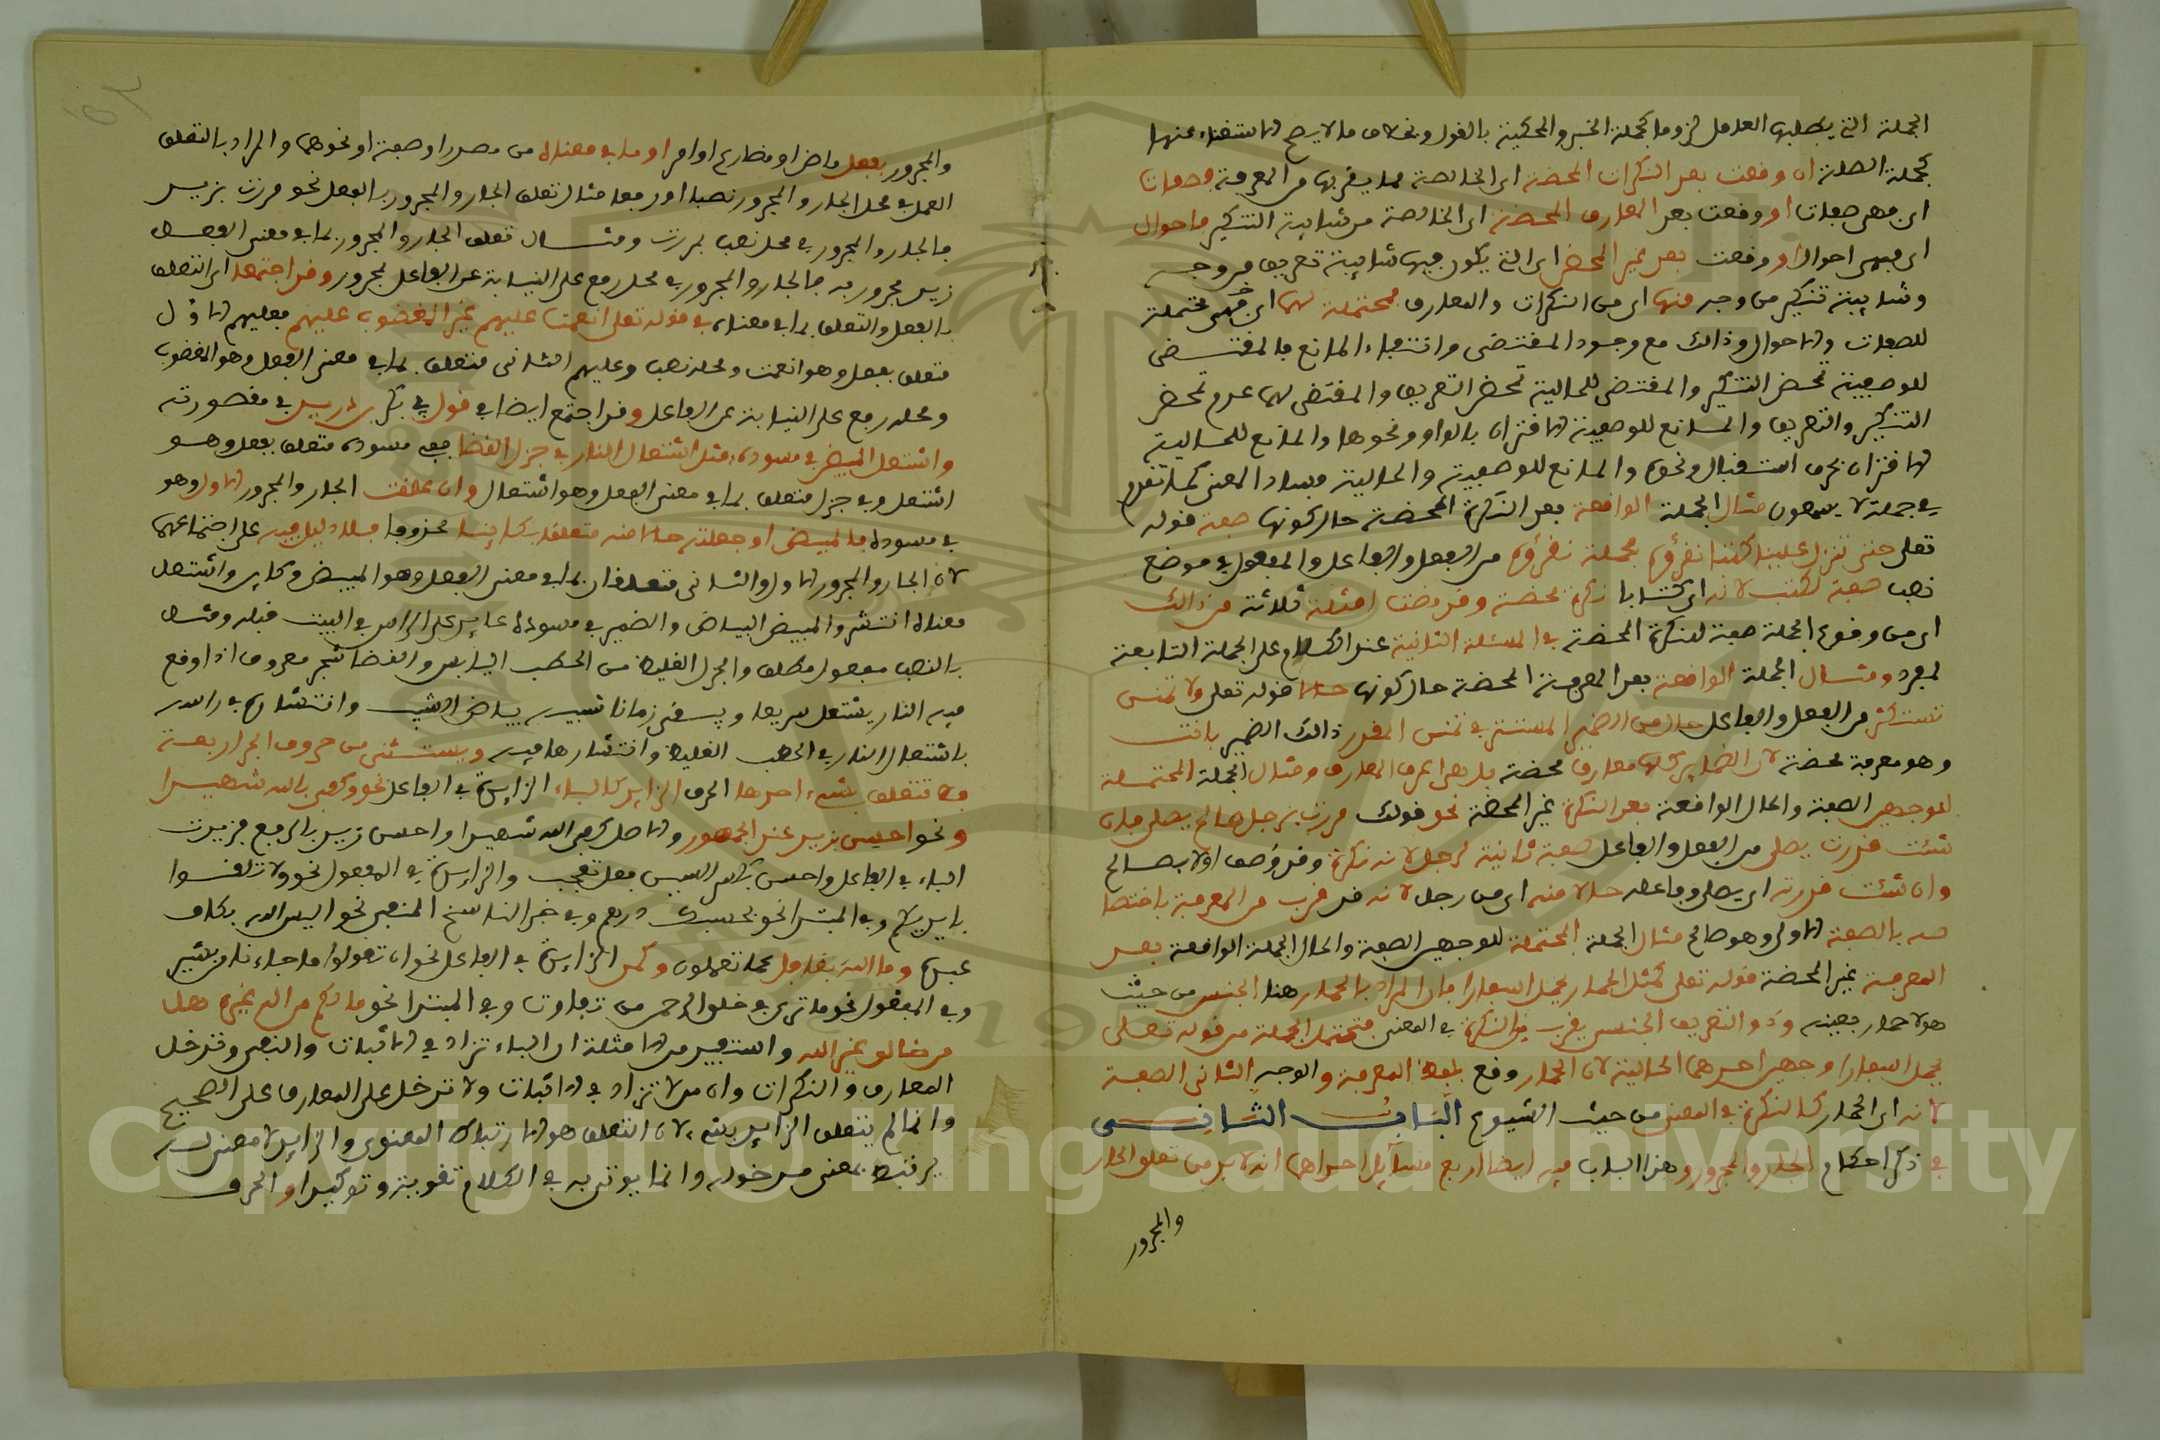 الجملة التي يطلبها العامل لزوما كجملة الخبر والمحكية بالقول وبخلاف ما لا يصح الاستغناء عنها
كجملة الصلة ان وقعت بعد النكرات المحضة اي الخالصة مما يقربها من المعرفة فصفات
اي فهي صفات او وقعت بعد المعارف المحضة اي الخالصة من شايبة التنكير فاحوال
اي فهي احوال او وقعت بعد غير المحض اي التي يكون فيها شايبة تعريف من وجه
وشايبة تنكير من وجه منها اي من النكرات والمعارف محتملة لهما اي فهي محتملة
للصفات والاحوال وذالك مع وجود المقتضى وانتفاء المانع فالمقتضى
للوصفية تمحض التنكير والمقتضى للحالية تمحض التعريف والمقتضى لهما عدم تمحض
التنكير والتعريف والمانع للوصفية الاقتران بالواو ونحوها والمانع للحالية
الاقتران بحرف استقبال ونحوه والمانع للوصفية والحالية فساد المعنى كما تقدم
في جملة لا يسمعون مثال الجملة الواقعة بعد النكرة المحضة حال كونها صفة قوله
تعلى حتى تنزل علينا كتابا نقرؤه فجملة نقرؤه من الفعل والفاعل والمفعول في موضع
نصب صفة لكتاب لانه اي كتابا نكرة محضة وقد مضت امثلة ثلاثة من ذالك
اي من وقوع الجملة صفة للنكرة المحضة في المسئلة الثانية عند الكلام على الجملة التابعة
لمفرد ومثال الجملة الواقعة بعد المعرفة المحضة حال كونها حالا قوله تعلى ولا تمنن
تستكثر من الفعل والفاعل حال من الضمير المستتر في تمنن المقدر ذالك الضمير بانت
وهو معرفة محضة لان الضماير كلها معارف محضة بل هي اعرف المعارف ومثال الجملة المحتملة
للوجهين الصفة والحال الواقعة بعد النكرة غير المحضة نحو قولك مررت برجل صالح يصلي فان
شئت قدرت يصلي من الفعل والفاعل صفة ثانية لرجل لانه نكرة وقد وُصف اولا بصالح
وان شئت قدرته اي يصلي وفاعله حالا منه اي من رجل لانه قد قرب من المعرفة باختصا
صه بالصفة الاولى وهو صالح مثال الجملة المحتملة للوجهين الصفة والحال الجملة الواقعة بعد
المعرفة غير المحضة قوله تعلى كمثل الحمار يحمل اسفارا فان المراد بالحمار هنا الجنس من حيث
هو لا حمار بعينه وذو التعريف الجنسي يقرب من النكرة في المعنى فتحتمل الجملة من قوله تعلى
يحمل اسفارا وجهين احدهما الحالية لان الحمار وقع بلفظ المعرفة والوجه الثاني الصفة
لانه اي الحمار كالنكرة في المعنى من حيث الشيوع الباب الثاني
في ذكر احكام الجار والمجرور وهذا الباب فيه ايضا اربع مسايل احداها انه لا بد من تعلق الجار
والمجرور
والمجرور بفعل ماض او مضارع او امر او ما في معناه من مصدر او صفة او نحوهما والمراد بالتعلق
العمل في محل الجار والمجرور نصبا او رفعا مثال تعلق الجار والمجرور بالفعل نحو مررت بزيد
فالجار والمجرور في محل نصب بمررت ومثال تعلق الجار والمجرور بما في معنى الفعل
زيد مجرور به فالجار والمجرور في محل رفع على النيابة عن الفاعل لمجرور وقد اجتمعا اي التعلق
بالفعل والتعلق بما في معناه في قوله تعلى انعمت عليهم غير المغضوب عليهم فعليهم الاول
متعلق بفعل وهو انعمت ومحله نصب وعليهم الثاني متعلق بما في معنى الفعل وهو المغضوب
ومحله رفع على النيابة عن الفاعل وقد اجتمع ايضا في قول ابي بكر بن دريد في مقصورته
واشتعل المبيض في مسوده مثل اشتعال النار في جزل الغضا ففي مسوده متعلق بفعل وهو
اشتعل وفي جزل متعلق بما في معنى الفعل وهو اشتعال وان علقت الجار والمجرور الاول وهو
في مسوده بالمبيض او جعلته حالا منه متعلقا بكاينا محذوفا فلا دليل فيه على اجتماعهما
لان الجار والمجرور الاول والثاني متعلقان بما في معنى الفعل وهو المبيض وكاين واشتعل
معناه انتشر والمبيض البياض والضمير في مسوده عايد على الراس في البيت قبله ومثل
بالنصب مفعول مطلق والجزل الغليظ من الحطب اليابس والغضا شجر معروف اذا وقع
فيه النار يشتعل سريعا ويبقى زمانا شبه بياض الشيب وانتشاره في راسه
باشتعال النار في الحطب الغليظ وانتشارها فيه ويستثنى من حروف الجر اربعة
فلا تتعلق بشيء احدها الحرف الزايد كالباء الزايدة في الفاعل نحو وكفى بالله شهيدا
ونحو احسن بزيد عند الجمهور والاصل كفى الله شهيدا واحسن زيد بالرفع فزيدت
الباء في الفاعل واحسن بكسر السين فعل تعجب والزايدة في المفعول نحو ولا تلقوا
بايديكم وفي المبتدا نحو بحسبك درهم وفي خبر الناسخ المنفي نحو اليس الله بكاف
عبده وما الله بغافل عما تعملون وكمن الزايدة في الفاعل نحو ان تقولوا ما جاءنا من بشير
وفي المفعول نحو ما ترى في خلق الرحمن من تفاوت وفي المبتدا نحو ما لكم من اله غيره هل
من خالق غير الله واستفيد من الامثلة ان الباء تزاد في الاثبات والنفي وتدخل
المعارف والنكرات وان من لا تزاد في الاثبات ولا تدخل على المعارف على الصحيح
وانما لم يتعلق الزايد بشيء لان التعلق هو الارتباط المعنوي والزايد لا معنى له
يرتبط بمعنى مدخوله وانما يوتى به في الكلام تقوية وتوكيدا والحرف
Copyright © King Saud University